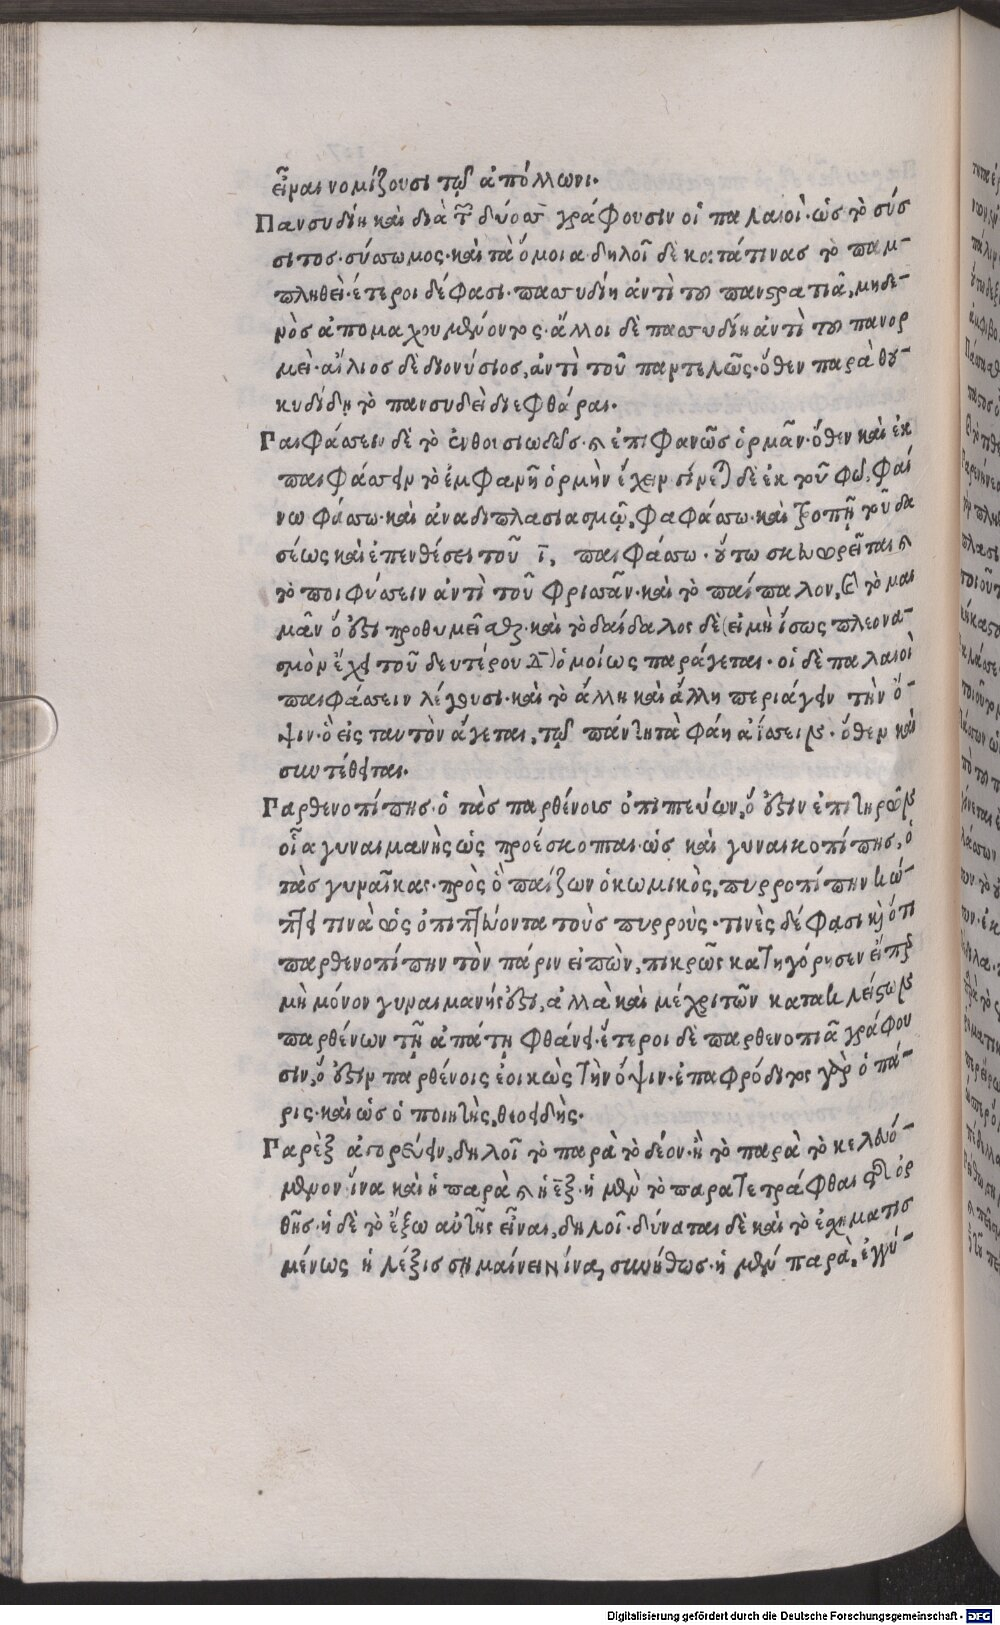 εἶναι νομίζουσι τῷ ἀπόλλωνι.
Πανσυδίη καὶ διὰ τῶν δύο σσ γράφουσιν οἱ παλαιοὶ· ὡς τὸ σύσ
σιτος· σύσσωμος· καὶ τὰ ὅμοια· δηλοῖ δὲ κατά τινας τὸ παμ-
πληθεὶ· ἕτεροι δέ φασι· πασσυδίη ἀντὶ του πανστρατιᾶ, μηδε-
νὸς ἀπομαχου μένοντος· ἄλλοι δὲ πασσυδίη ἀντὶ του πανορ
μεὶ· αἴλιος δὲ διονύσιος, ἀντὶ τοῦ παντελῶς· ὅθεν παρὰ θου-
κυδίδη τὸ πανσυδεὶ διεφθάραι.
Παιφάσσειν δὲ τὸ ἐνθουσιωδῶς καὶ ἐπιφανῶς ὁρμᾶν· ὅθεν καὶ ἐκ
παιφάσσειν τὸ ἐμφανῆ ὁρμὴν ἔχειν· γίνεται δὲ ἐκ τοῦ φῶ, φαί
νω φάσσω· καὶ ἀναδιπλασιασμῷ, φαφάσσω· καὶ τροπῇ τοῦ δα
σέως καὶ ἐπενθέσει τοῦ ι, παιφάσσω· οὕτω σκευωρεῖται καὶ
τὸ ποιφύσσειν ἀντὶ τοῦ φρισσᾶν· καὶ τὸ παίπαλον, καὶ τὸ μαι
μᾶν ὅ ἐστι προθυμεῖσθαι· καὶ τὸ δαίδαλος δὲ (εἰ μὴ ἴσως πλεονα-
σμὸν ἔχει τοῦ δευτέρου Δ) ὁμοίως παράγεται· οἱ δὲ παλαιοὶ
παιφάσσειν λέγουσι· καὶ τὸ ἄλλη καὶ ἄλλη περιάγειν τὴν ὄ-
ψιν· ὃ εἰς ταυτὸν ἄγεται, τῷ πάντη τὰ φάη ἀΐσσειν· ὅθεν καὶ
συντέθειται.
Παρθενοπίπης· ὁ τὰς παρθένους ὀπιπεύων, ὅ ἐστιν ἐπιτηρῶν
οἷα γυναιμανὴς ὡς προέσκοπται· ὡς καὶ γυναικοπίπης, ὁ
τὰς γυναῖκας· πρὸς ὃ παίζων ὁ κωμικὸς, πυρροπίπην σκώ-
πτει τινὰ ὡς ὀπιπτεύοντα τοὺς πυρροὺς· τινὲς δέ φασι καὶ ὅτι
παρθενοπίπην τὸν πάριν εἰπὼν, πικρῶς κατηγόρησεν εἴπερ
μὴ μόνον γυναιμανής ἐστι, ἀλλὰ καὶ μέχρι τῶν κατακλείστων
παρθένων τῇ ἀπάτῃ φθάνει· ἕτεροι δὲ παρθενοπῖπα γράφου
σιν, ὅ ἐστιν παρθένοις ἐοικὼς τὴν ὄψιν· ἐπαφρόδιτος γὰρ ὁ πά-
ρις· καὶ ὡς ὁ ποιητὴς, θεοειδής.
Παρὲξ ἀγορεύειν, δηλοῖ τὸ παρὰ τὸ δέον· ἢ τὸ παρὰ τὸ κελευό-
μενον· ἵνα καὶ ἡ παρὰ καὶ ἡ ἐξ· ἡ μὲν τὸ παρατετράφθαι τῆς ὀρ
θῆς· ἡ δὲ τὸ ἔξω αὐτῆς εἶναι, δηλοῖ· δύναται δὲ καὶ τὸ ἐσχηματισ
μένως ἡ λέξις σημαίνειν· ἵνα, συνήθως· ἡ μὲν παρὰ, ἐγγύ-
Digitalisierung gefördert durch die Deutsche Forschungsgemeinschaft - DFG